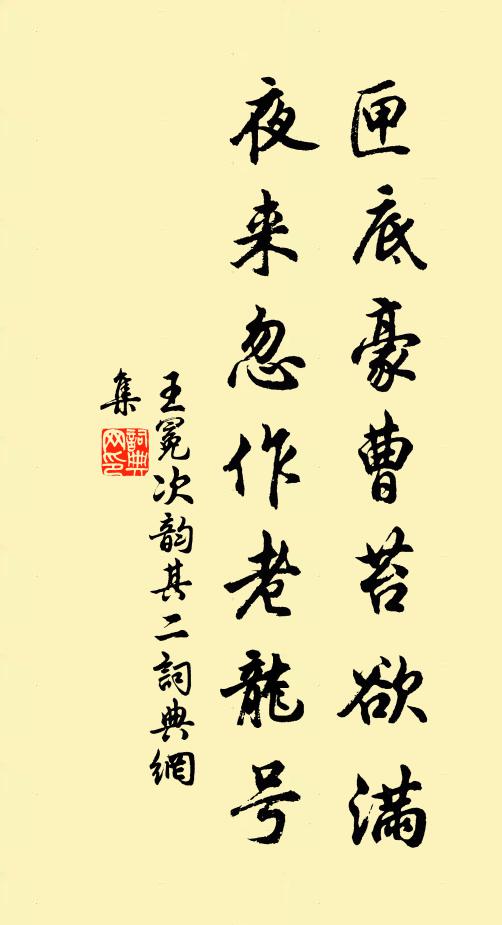 匣底豪曹苔欲满
夜来忽作老龍号
王冕次韵其二詞典網
集
詞典网印